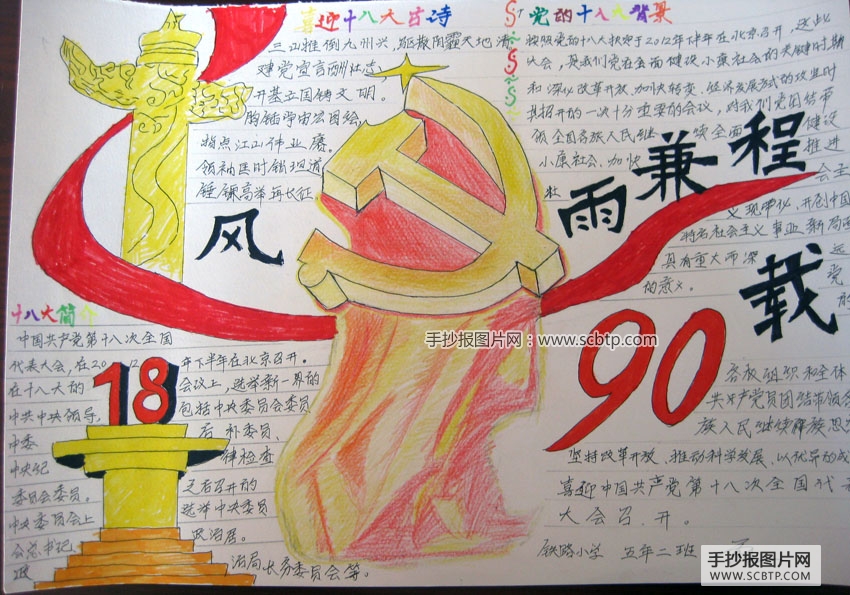 喜迎十八大古诗
三山推倒九州兴，驱散阴霾天地清
建党宣言酬壮志，
开基立国铸文明。
胸铺宇宙宏图绘，
指点江山伟业
领袖匡时领现道
锤镰高举再长征
党的十八大背景
按照党的十八大决定于2012年下半年在北京召开，这次
大会，是我们党在全面建设小康社会的关键时期
和深化改革开放、加快转变经济发展方式的攻坚时
其招开的一次十分重要的会议，对我们党团结带
领全国各族人民继续全面建设
小康社会、加快推进
社会主
义现带化、开创中国
特色社会主义事业新局面
具有重大而深远
的意义。
党
的
风雨兼程
90载
各级组织和全体
共产党员团结带领各
族人民继续解放思想
坚持改革开放、推动科学发展、以优异的成
喜迎中国共产党第十八次全国代表
大会召开。
铁路小学 五年二班
十八大简介
中国共产党第十八次全国
代表大会，在2012年下半年在北京召开。
在十八大的会议上，选举新一界的
中共中央领导，包括中央委员会委员
中委后补委员，
中央纪律检查
委员会委员。之后召开的
中央委员会上选举中央委员
会总书记，政治局。
政治局长务委员会等。
18
手抄报图片网：www.scbtp.com
手抄报图片网
WWW.SCBTP.COM